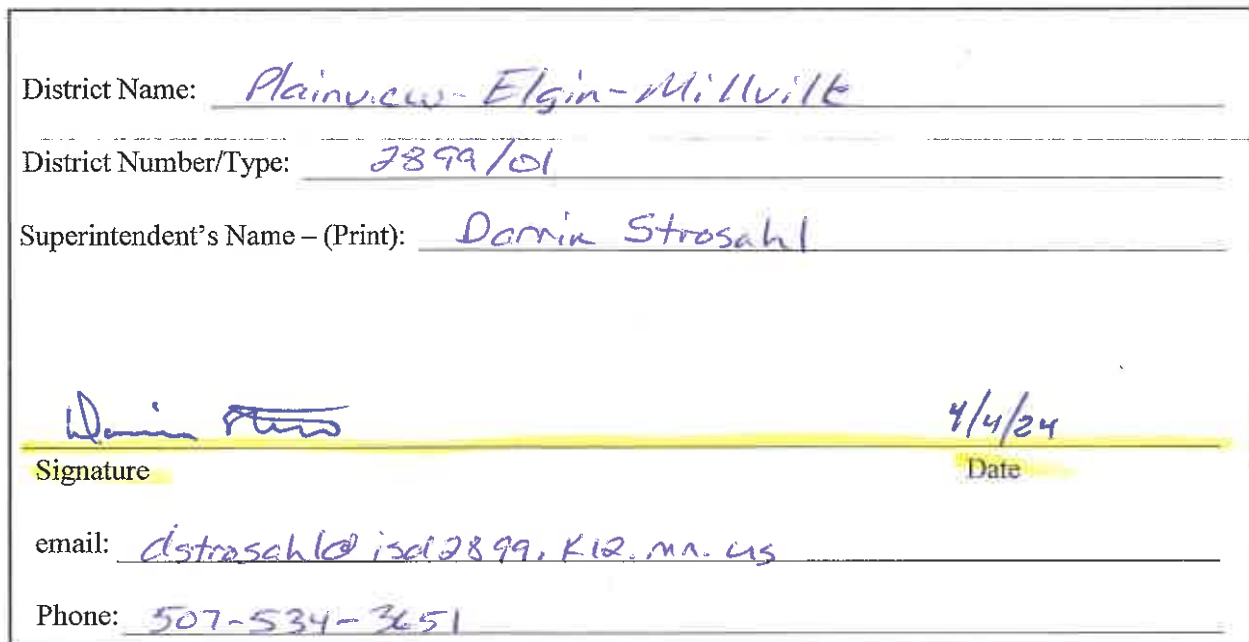 District Name: Plainview-Elgin-Millville
District Number/Type: 2899/01
Superintendent's Name – (Print): Darrin Strosahl
Darrin Stro 4/4/24
Signature Date
email: dstrosahl@isd2899.k12.mn.us
Phone: 507-534-3651